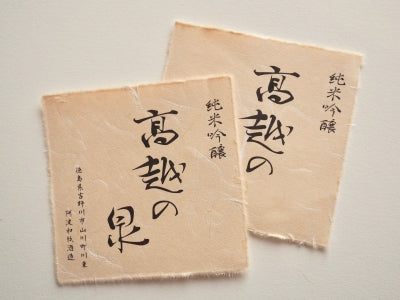 純米吟醸
高越の
泉
徳島県吉野川市山川町川東
阿波和紙酒造
純米吟醸
高越の